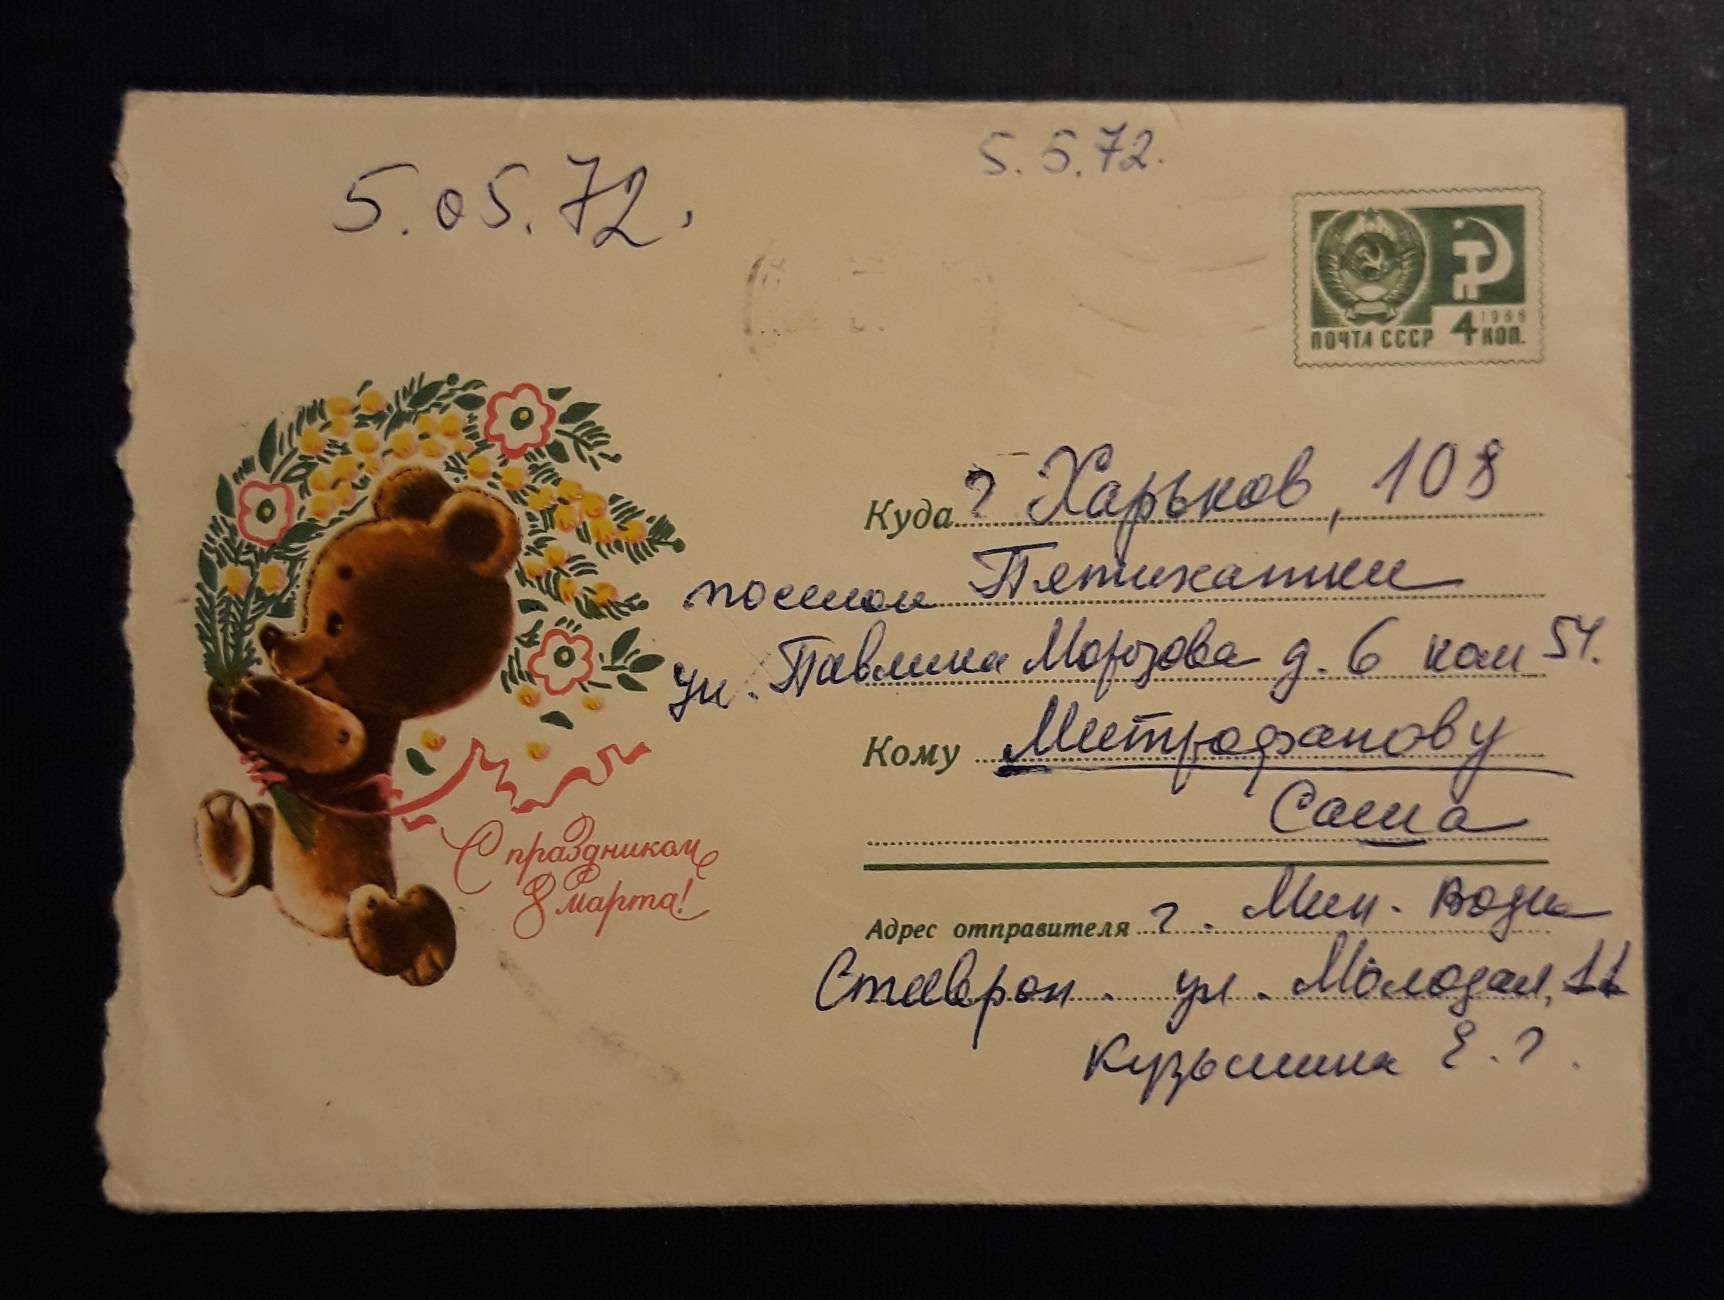 5.05.72.
5.5.72.
ПОЧТА СССР 4 КОП.
1966
Куда г Харьков, 108
поселок Пятихатки
ул. Павлика Морозова д. 6 ком 54.
Кому Митрофанову
Саша
С праздником
8 марта!
Адрес отправителя г. Мин. Воды
Ставроп. ул. Молодая, 11
Кузьмина Е. Г.